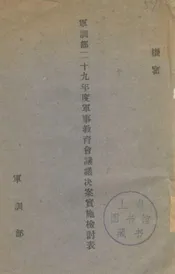 檔案
軍訓部二十九年度軍事教育會議議決案實施檢討表
軍訓部
上海
圖書館
藏書